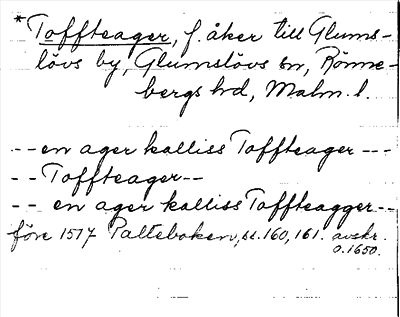 *Toffteager, f. åker till Glums-
lövs by, Glumslövs sn, Rönne-
bergs hd, Malm. l.
-- en ager kalliss Toffteager ---
-- Toffteager --
-- en ager kalliss Toffteagger --
före 1517 Palteboken, ss. 160, 161. avskr.
o. 1650.